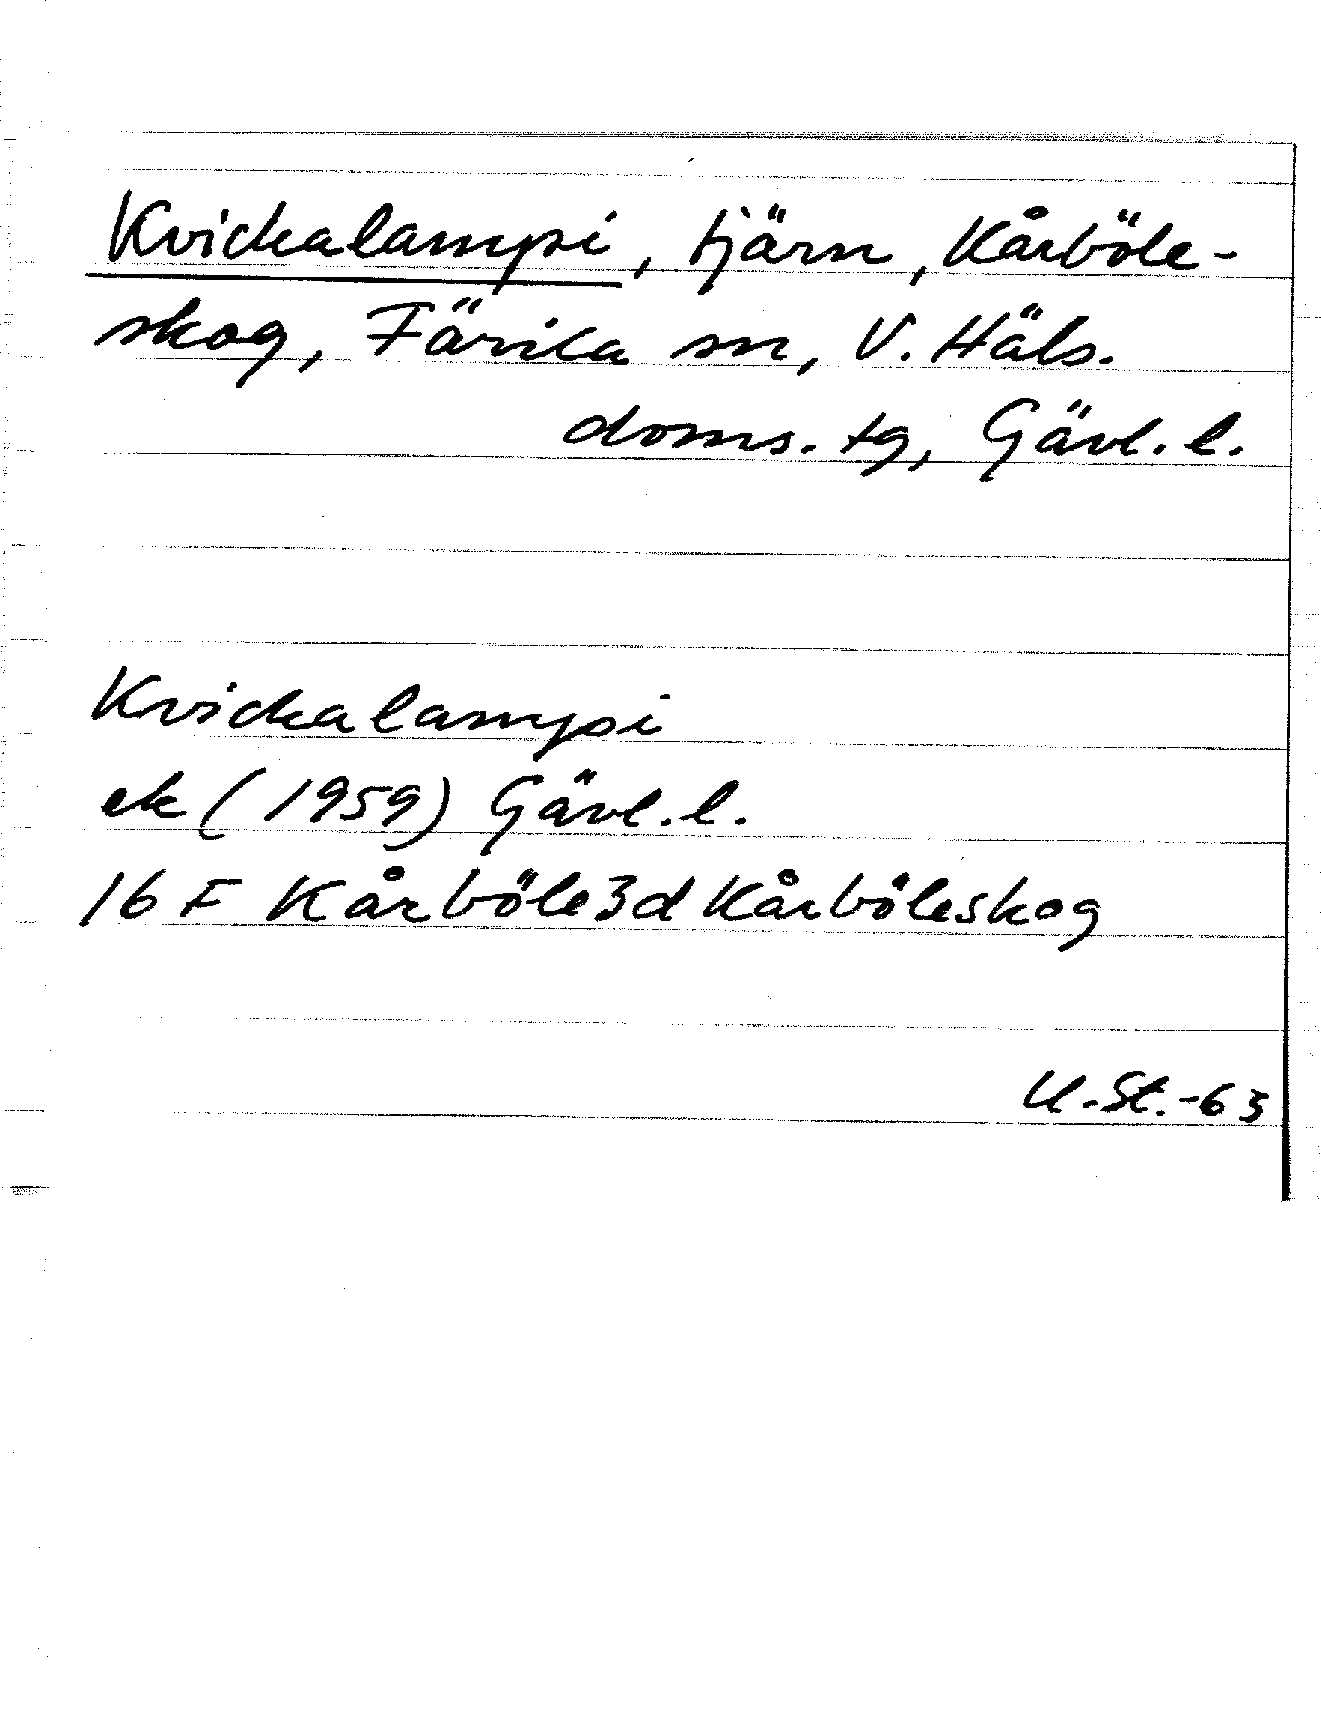 Kvickalampi, tjärn, Kårböle-
skog, Färila sn, V. Häls.
doms. tg, Gävl. l.
Kvickalampi
ek (1959) Gävl. l.
16 F Kårböle 3d Kårböleskog
U.St.-63